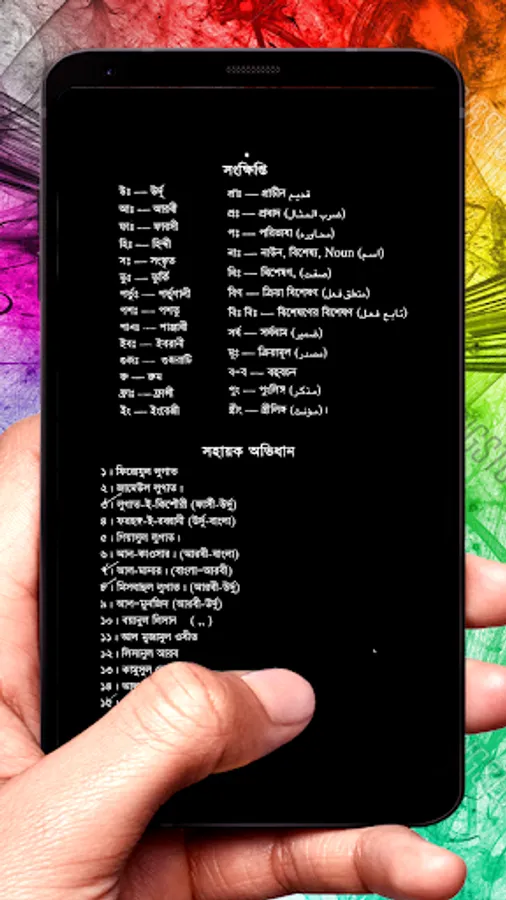 সংক্ষিপ্তি
উঃ — উর্দূ
আঃ — আরবী
ফাঃ — ফারসী
হিঃ — হিন্দী
সঃ — সংস্কৃত
তুঃ — তুর্কি
পর্তুঃ — পর্তুগালী
পশঃ — পশতু
পানঃ — পাঞ্জাবী
ইবঃ — ইবরানী
গুজঃ — গুজরাটি
রু — রুম
ফ্রাঃ — ফ্রান্সী
ইং — ইংরেজী
প্রাঃ — প্রাচীন قدیم
প্রঃ — প্রবাদ (ضرب المثال)
পঃ — পরিভাষা (محاوره)
নাঃ — নাউন, বিশেষ্য, Noun (اسم)
বিঃ — বিশেষণ, (صفت)
বিণ — ক্রিয়া বিশেষণ (متعلق فعل)
বিঃ বিঃ — বিশেষণের বিশেষণ (تابع فعل)
সর্ব — সর্বনাম (ضمیر)
মূঃ — ক্রিয়ামূল (مصدر)
ব-ব — বহুবচন
পুং — পুংলিঙ্গ (مذكر)
স্ত্রীং — স্ত্রীলিঙ্গ (مؤنث)।
সহায়ক অভিধান
১। ফিরোযুল লুগাত
২। জামেউল লুগাত।
৩। লুগাত-ই-কিশোরী (ফার্সী-উর্দু)
৪। ফরহঙ্গ-ই-রব্বানী (উর্দু-বাংলা)
৫। গিয়াসুল লুগাত।
৬। আল-কাওসার। (আরবী-বাংলা)
৭। আল-মানার। (বাংলা-আরবী)
৮। মিসবাহুল লুগাত। (আরবী-উর্দু)
৯। আল-মুনজিদ (আরবী-উর্দু)
১০। বয়ানুল লিসান ( ,, )
১১। আল মুজামুল ওসীত
১২। লিসানুল আরব
১৩। কামুসুল
১৪।
১৫।